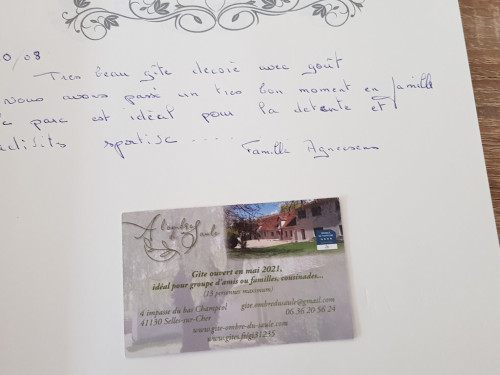 10/08
Tres beau gîte decoré avec goût
Nous avons passé un tres bon moment en famille
parc est idéal pour la detente et
activités sportive ....
Famille
A l'ombre du Saule
Gîte ouvert en mai 2021,
idéal pour groupe d'amis ou familles, cousinades...
(15 personnes maximum)
4 impasse du bas Champcol
41130 Selles-sur-Cher
gite.ombredusaule@gmail.com
06 36 20 56 24
www.gite-ombre-du-saule.com
www.gites.fr/gi31255